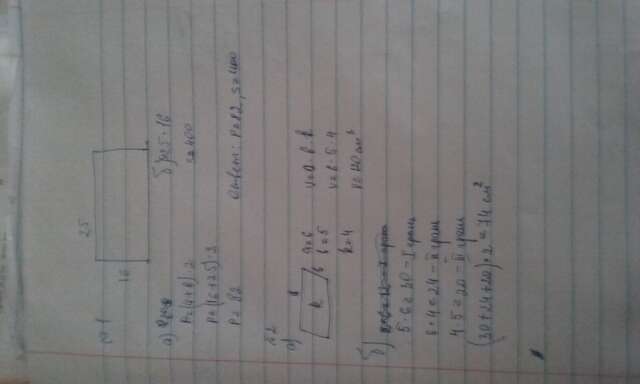 25
№1
16
а)
б) 25·16
P=(a+b)·2
S=400
P=(16+25)·2
P=82
Ответ: P=82, S=400
№2
а)
a=6
V=a·b·k
b=5
V=6·5·4
k
k=4
V=120 см³
б)
5·6=30 - I грань
6·4=24 - II грань
4·5=20 - III грань
(30+24+20)·2=74 см²